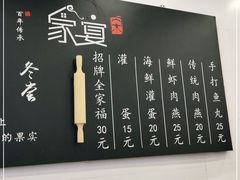 百年传承
家宴
冬尝
上
的果实
招牌全家福30元
灌蛋15元
海鲜灌蛋20元
鲜虾肉燕25元
传统肉燕20元
手打鱼丸25元